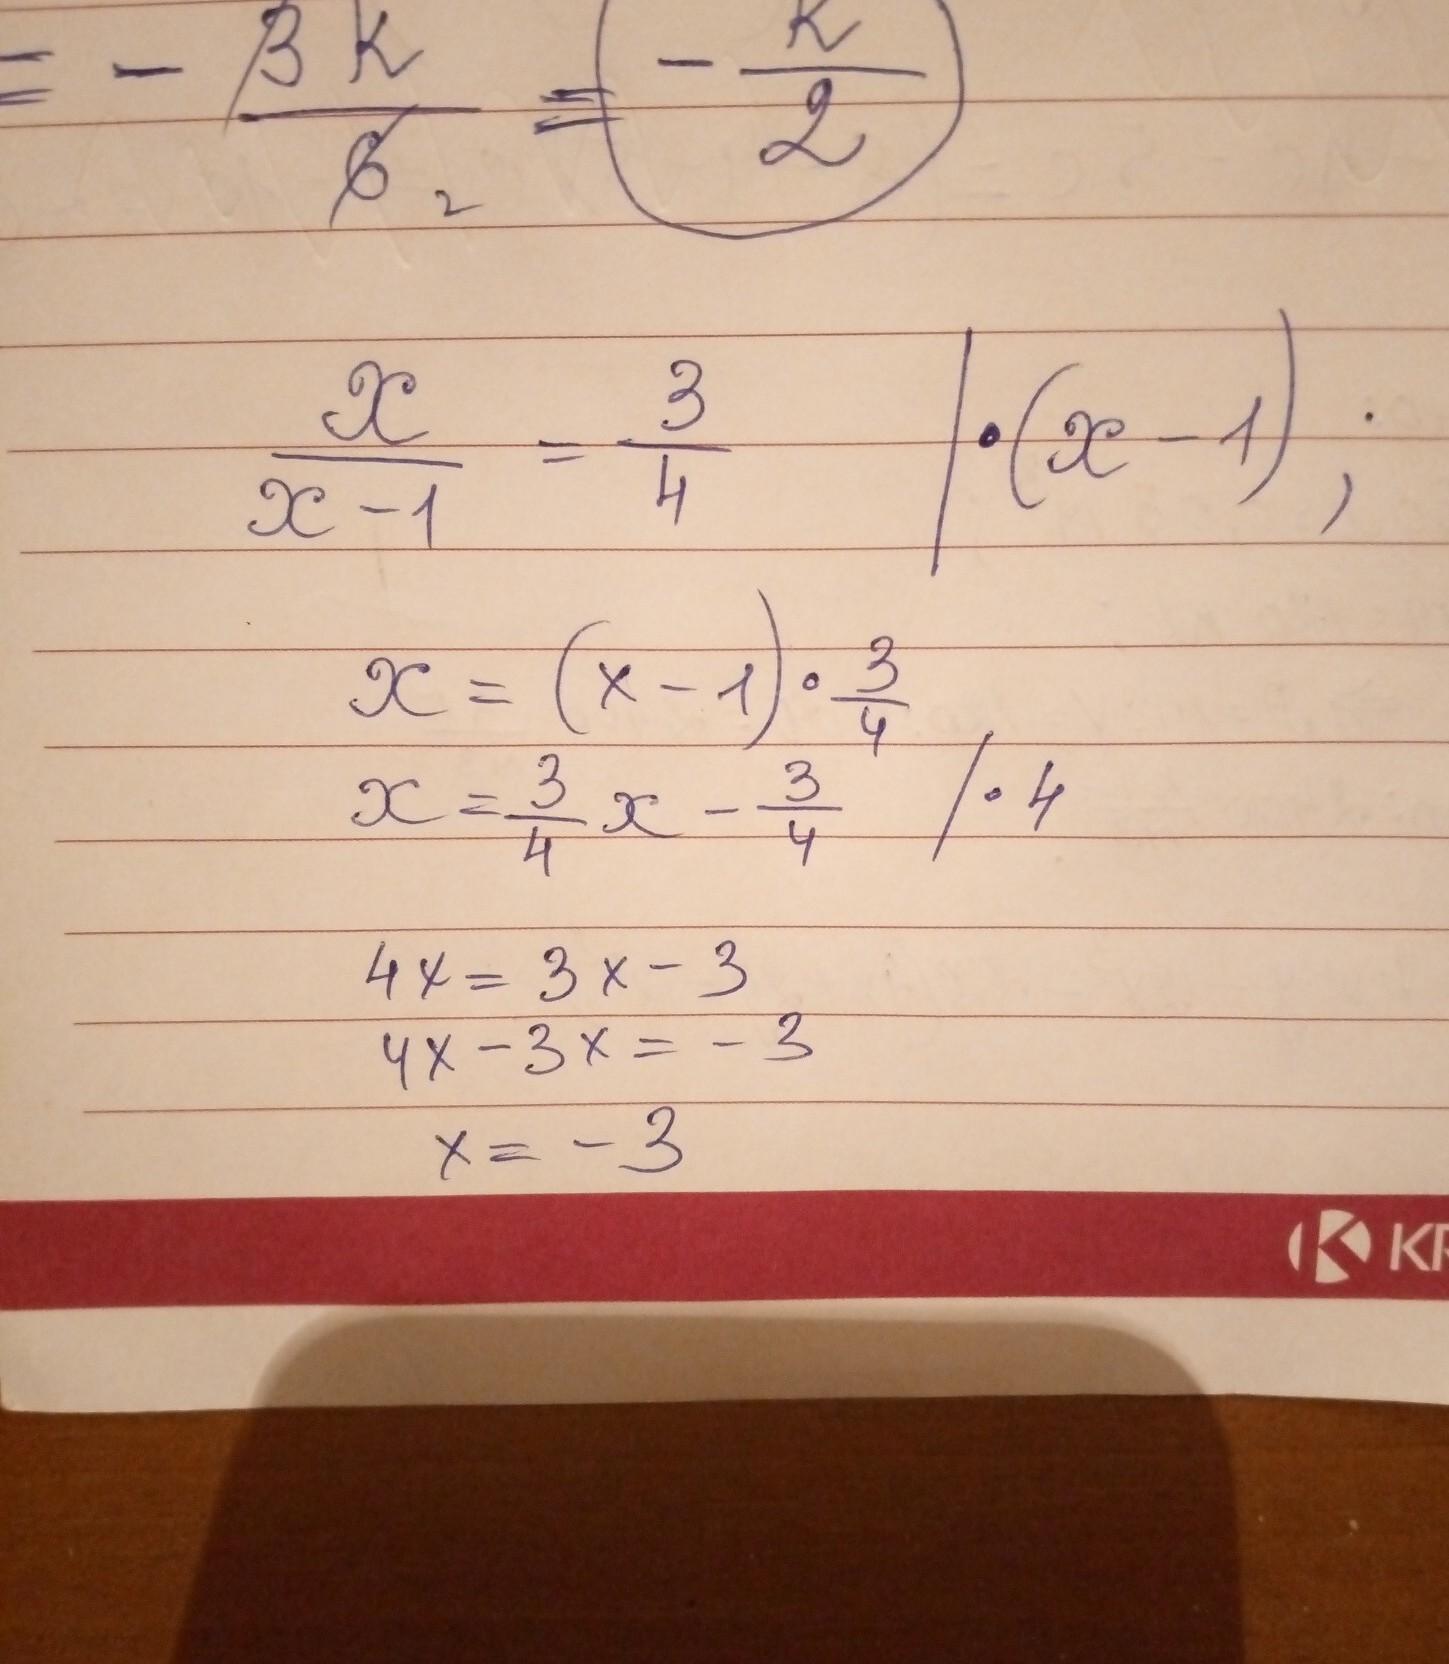 = - 3k/6 2 = - k/2
x/(x-1) = 3/4 | · (x-1);
x = (x-1) · 3/4
x = 3/4 x - 3/4 / · 4
4x = 3x - 3
4x - 3x = - 3
x = - 3
KR